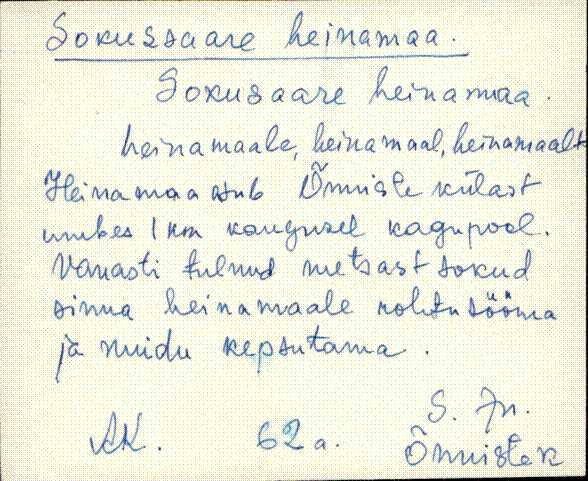 Sokussaare heinamaa.
Sokusaare heinamaa.
heinamaale, heinamaal, heinamaalt
Heinamaa asub Õmniste külast
umbes 1 km kaugusel kagupool.
Vanasti tulnud metsast sokud
sinna heinamaale rohtu sööma
ja muidu kepsutama.
S. In.
AK. 62 a. Õmniste k